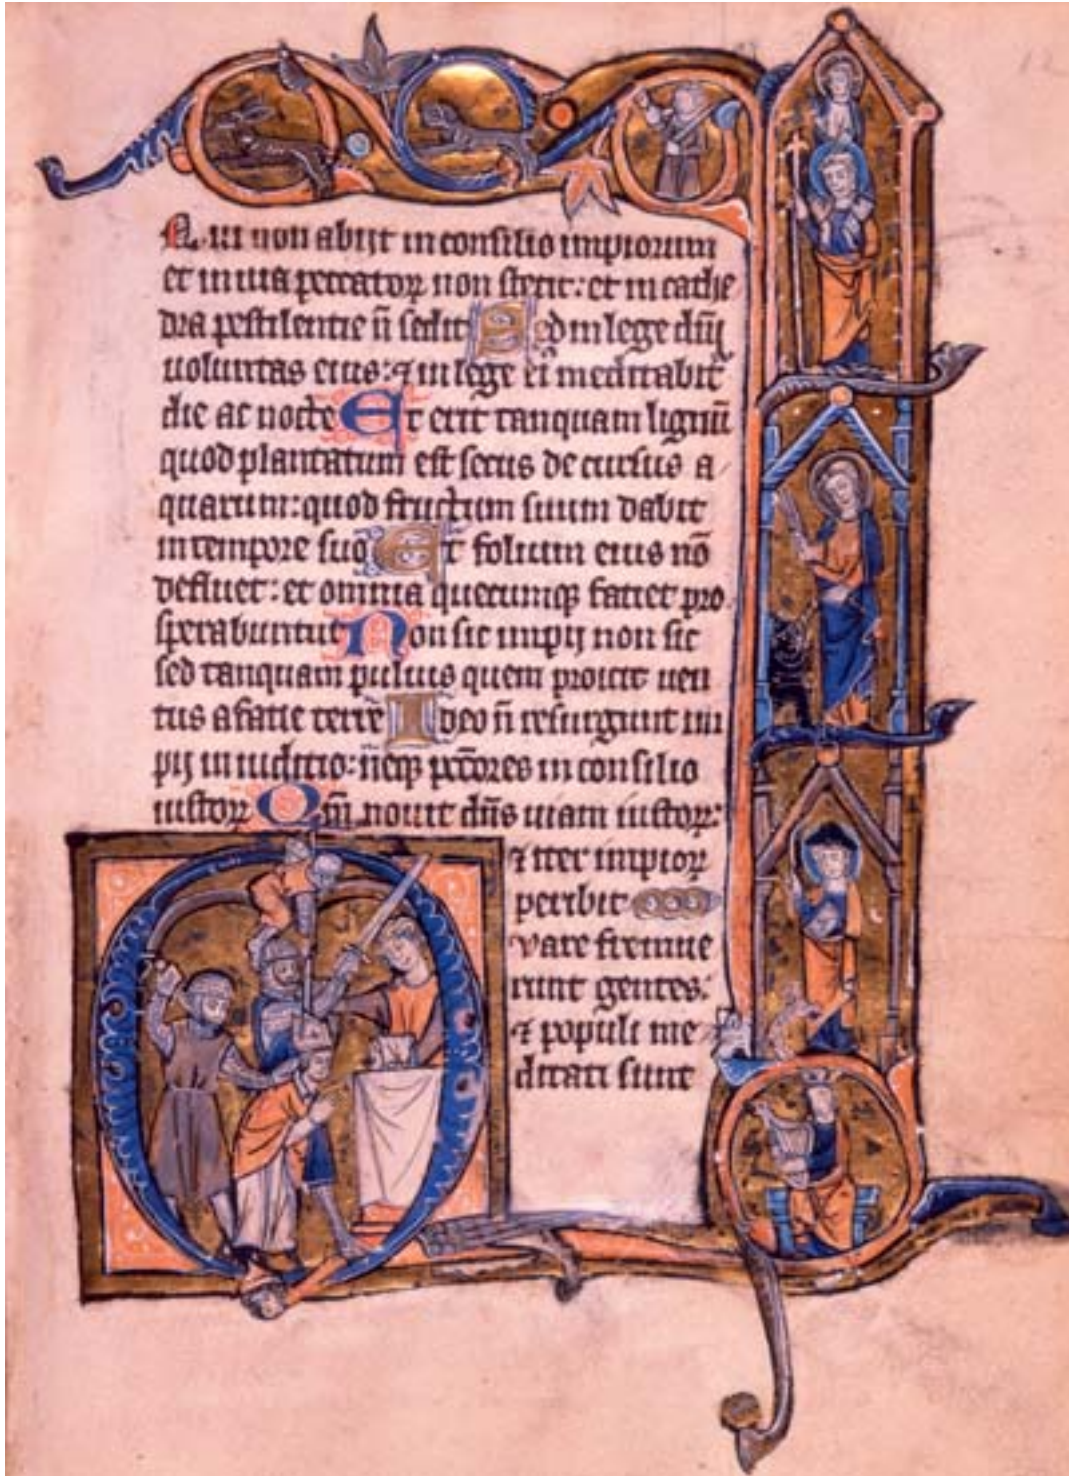 Qui non abijt in consilio impiorum
et in uia peccatoꝝ non stetit: et in cathe
dra pestilentie n̄ sedit Sed in lege dn̄j
uoluntas eius: ⁊ in lege ei᷒ meditabit᷑
die ac nocte Et erit tanquam lignū
quod plantatum est secus decursus a
quarum: quod fructum suum dabit
in tempore suo Et folium eius nō
defluet: et omnia quecumqꝫ faciet pro
sperabuntur Non sic impij non sic
sed tanquam puluis quem proicit uen
tus a facie terre Ideo n̄ resurgunt im
pij in iuditio: neqꝫ pc̄cores in consilio
iustoꝝ Qm̄ nouit dn̄s uiam iustoꝝ:
⁊ iter impioꝝ
peribit
vare fremue
runt gentes:
⁊ populi me
ditati sunt
12